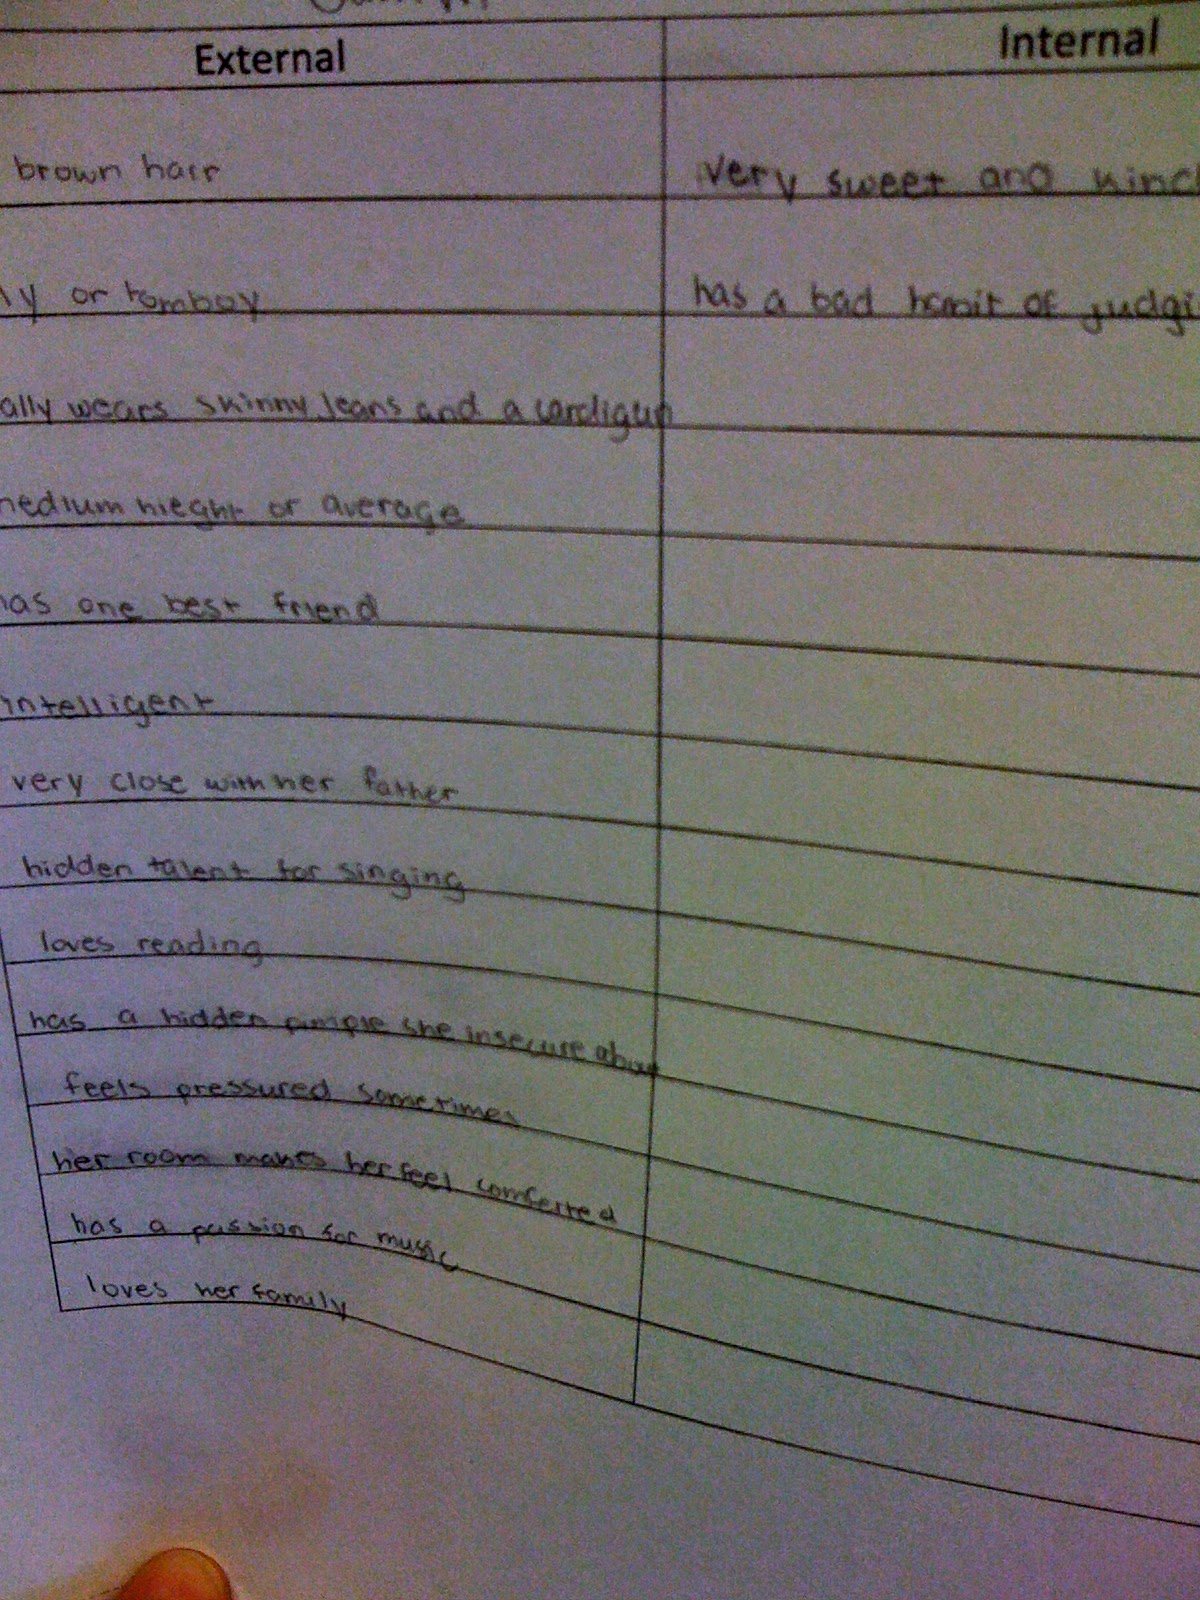 External Internal
brown hair very sweet and kind
ly or tomboy has a bad habit of judgi
ally wears skinny jeans and a cardigun
medium hieght or average
has one best friend
intelligent
very close with her father
hidden talent for singing
loves reading
has a hidden pimple she insecure about
feels pressured sometimes
her room makes her feel comferted
has a passion for music
loves her family